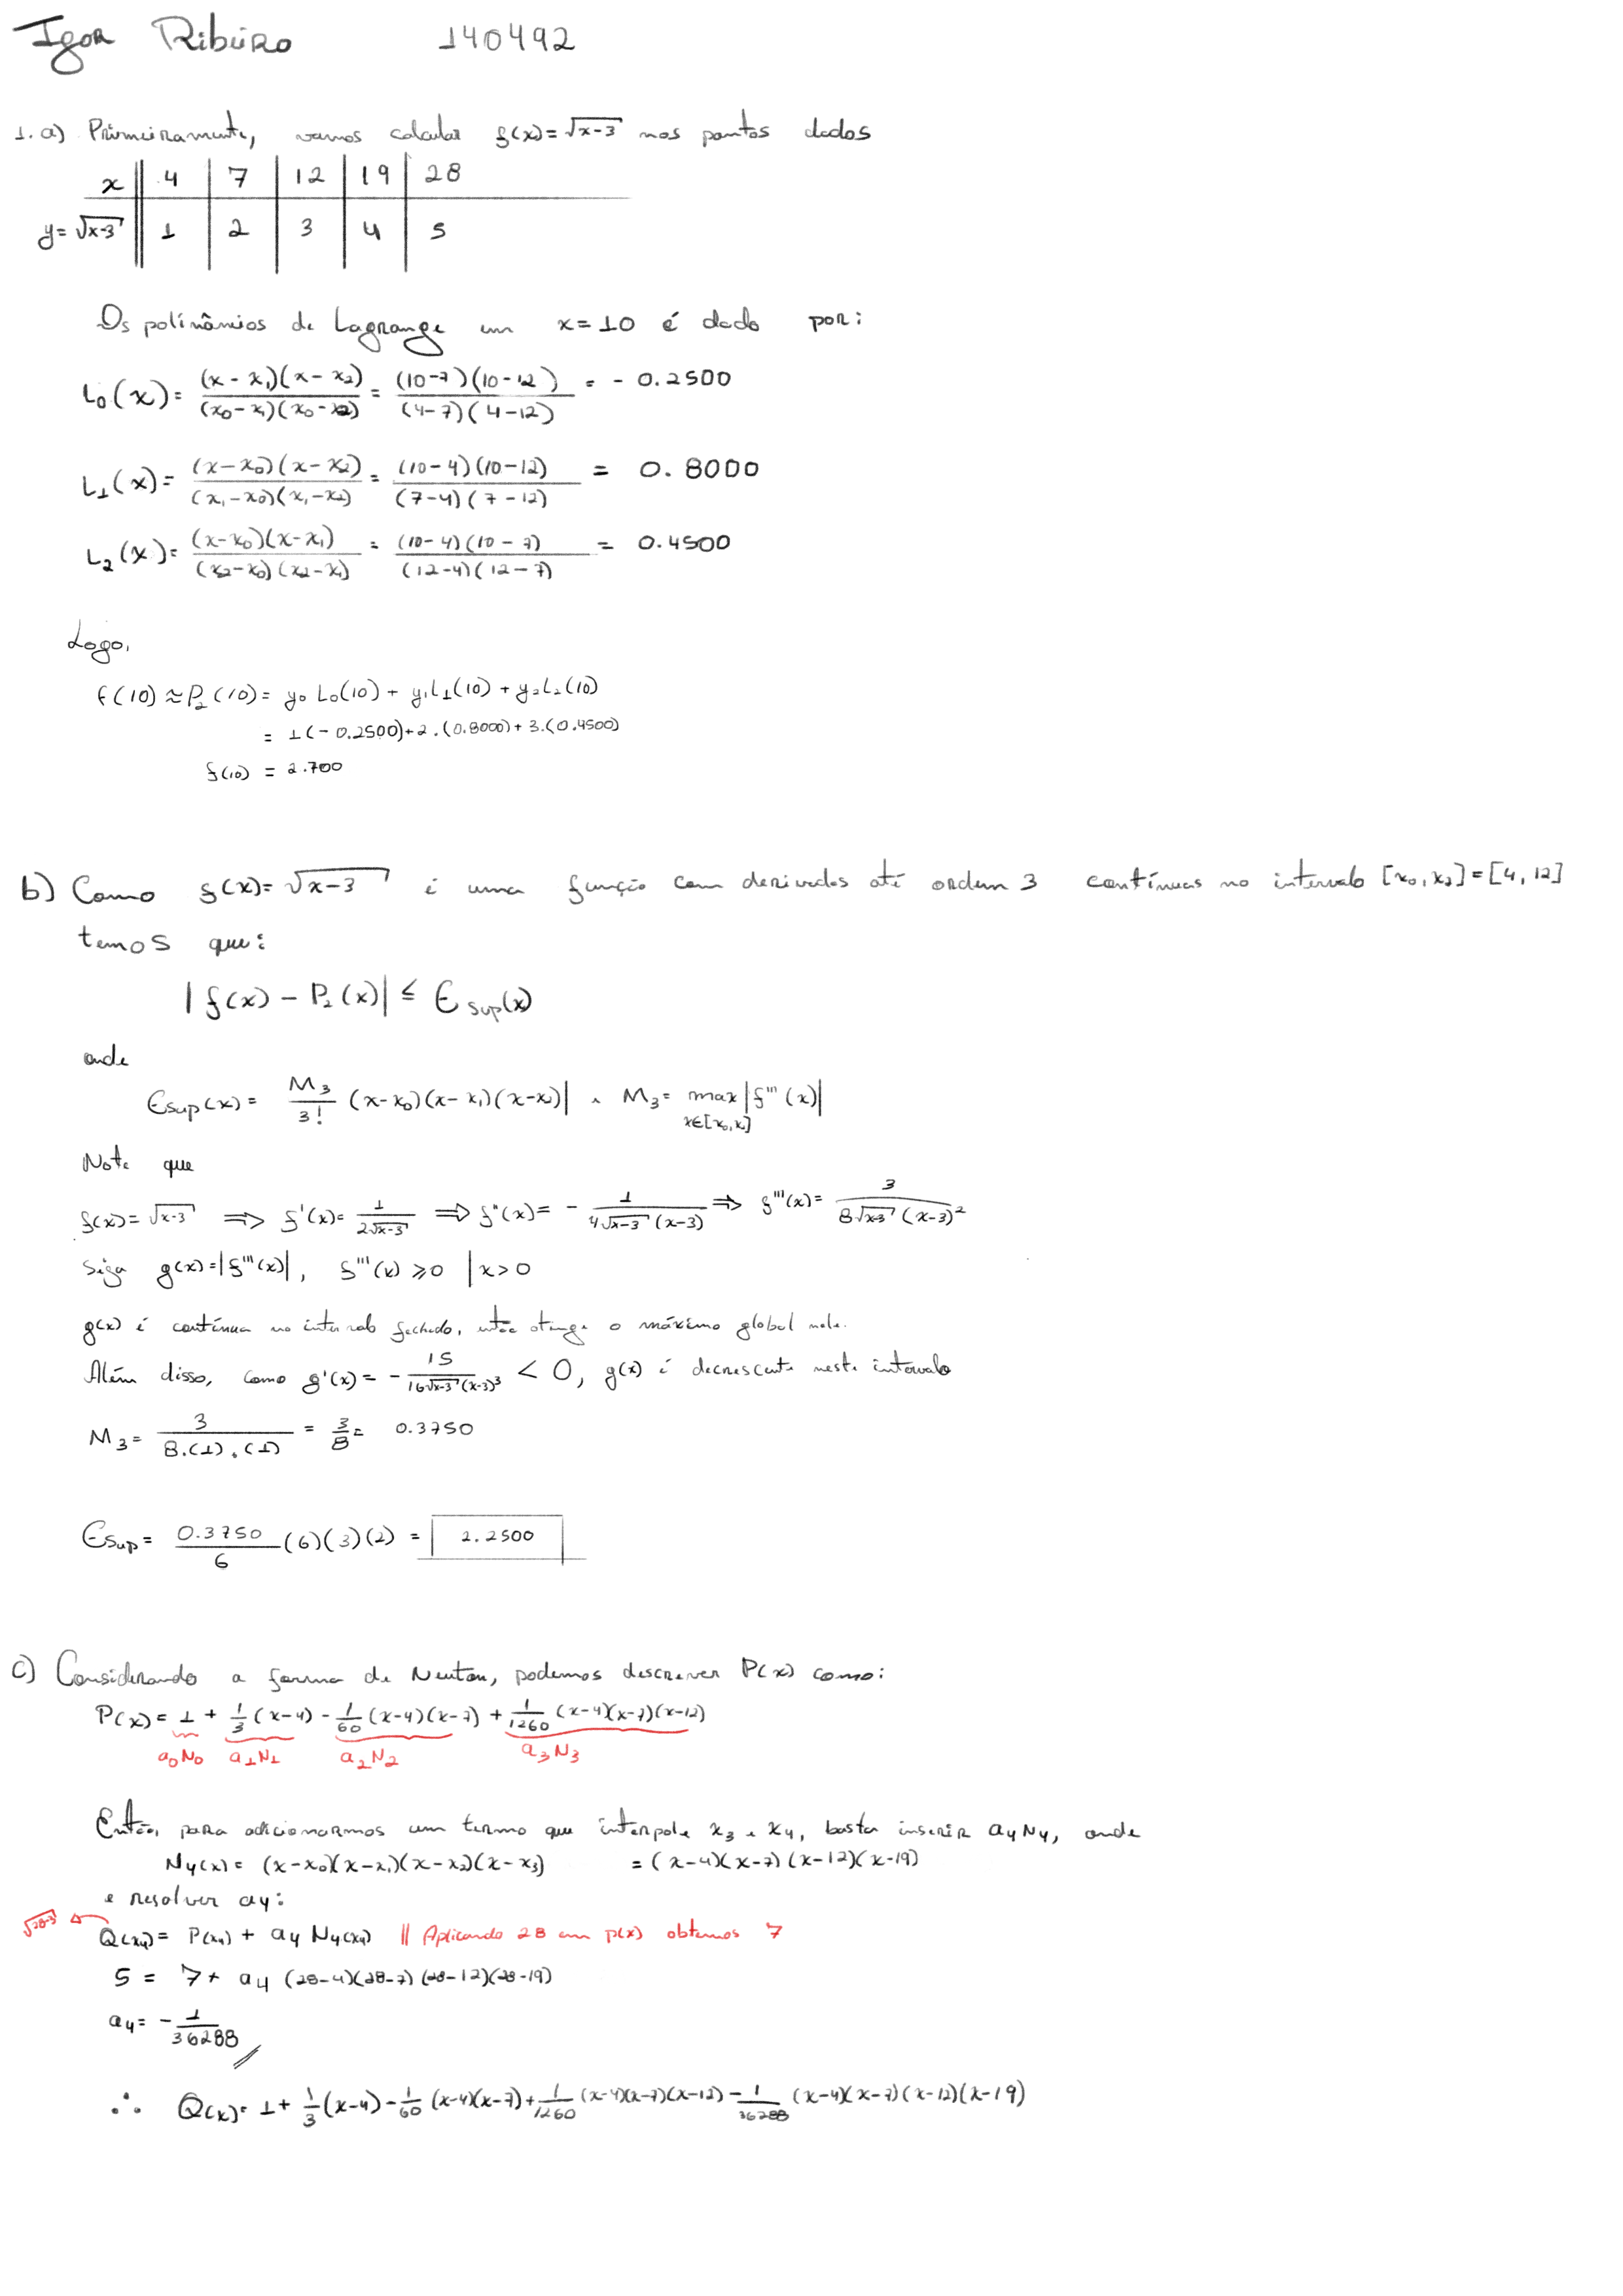 Igor Ribeiro 140492
1. a) Primeiramente, vamos calcular f(x)=√x-3 nos pontos dados
x 4 7 12 19 28
y=√x-3 1 2 3 4 5
Os polinâmios de Lagrange em x=10 é dado por:
L₀(x)= (x-x₁)(x-x₂)/(x₀-x₁)(x₀-x₂) = (10-7)(10-12)/(4-7)(4-12) = -0.2500
L₁(x)= (x-x₀)(x-x₂)/(x₁-x₀)(x₁-x₂) = (10-4)(10-12)/(7-4)(7-12) = 0.8000
L₂(x)= (x-x₀)(x-x₁)/(x₂-x₀)(x₂-x₁) = (10-4)(10-7)/(12-4)(12-7) = 0.4500
Logo,
f(10)≈P₂(10)= y₀L₀(10)+y₁L₁(10)+y₂L₂(10)
= 1(-0.2500)+2.(0.8000)+3.(0.4500)
f(10) = 2.700
b) Como f(x)=√x-3 é uma função com derivadas até ordem 3 contínuas no intervalo [x₀,x₂]=[4,12]
temos que:
|f(x)-P₂(x)| ≤ Esup(x)
onde
Esup(x)= M₃/3! (x-x₀)(x-x₁)(x-x₂)| . M₃= max|f'''(x)|
x∈[x₀,x₂]
Note que
f(x)=√x-3 ⇒ f'(x)= 1/2√x-3 ⇒ f''(x)= - 1/4√x-3(x-3) ⇒ f'''(x)= 3/8√x-3(x-3)²
Seja g(x)=|f'''(x)|, f'''(x)≥0 |x>0
g(x) é contínua no intervalo fechado, então atinge o máximo global nele.
Além disso, como g'(x)= - 15/16√x-3(x-3)³ < 0, g(x) é decrescente neste intervalo
M₃= 3/8.(1).(1) = 3/8= 0.3750
Esup= 0.3750/6 (6)(3)(2) = 2.2500
c) Considerando a forma de Newton, podemos descrever P(x) como:
P(x)= 1 + 1/3(x-4) - 1/60(x-4)(x-7) + 1/1260(x-4)(x-7)(x-12)
a₀N₀ a₁N₁ a₂N₂ a₃N₃
Então, para adicionarmos um termo que interpole x₃ e x₄, basta inserir a₄N₄, onde
N₄(x)= (x-x₀)(x-x₁)(x-x₂)(x-x₃) =(x-4)(x-7)(x-12)(x-19)
e resolver a₄:
√28-3 ← Q(x₄)= P(x₄) + a₄N₄(x₄) || Aplicando 28 em p(x) obtemos 7
5 = 7+ a₄ (28-4)(28-7)(28-12)(28-19)
a₄= - 1/36288
∴ Q(x)= 1+ 1/3(x-4) - 1/60(x-4)(x-7)+ 1/1260(x-4)(x-7)(x-12) - 1/36288(x-4)(x-7)(x-12)(x-19)